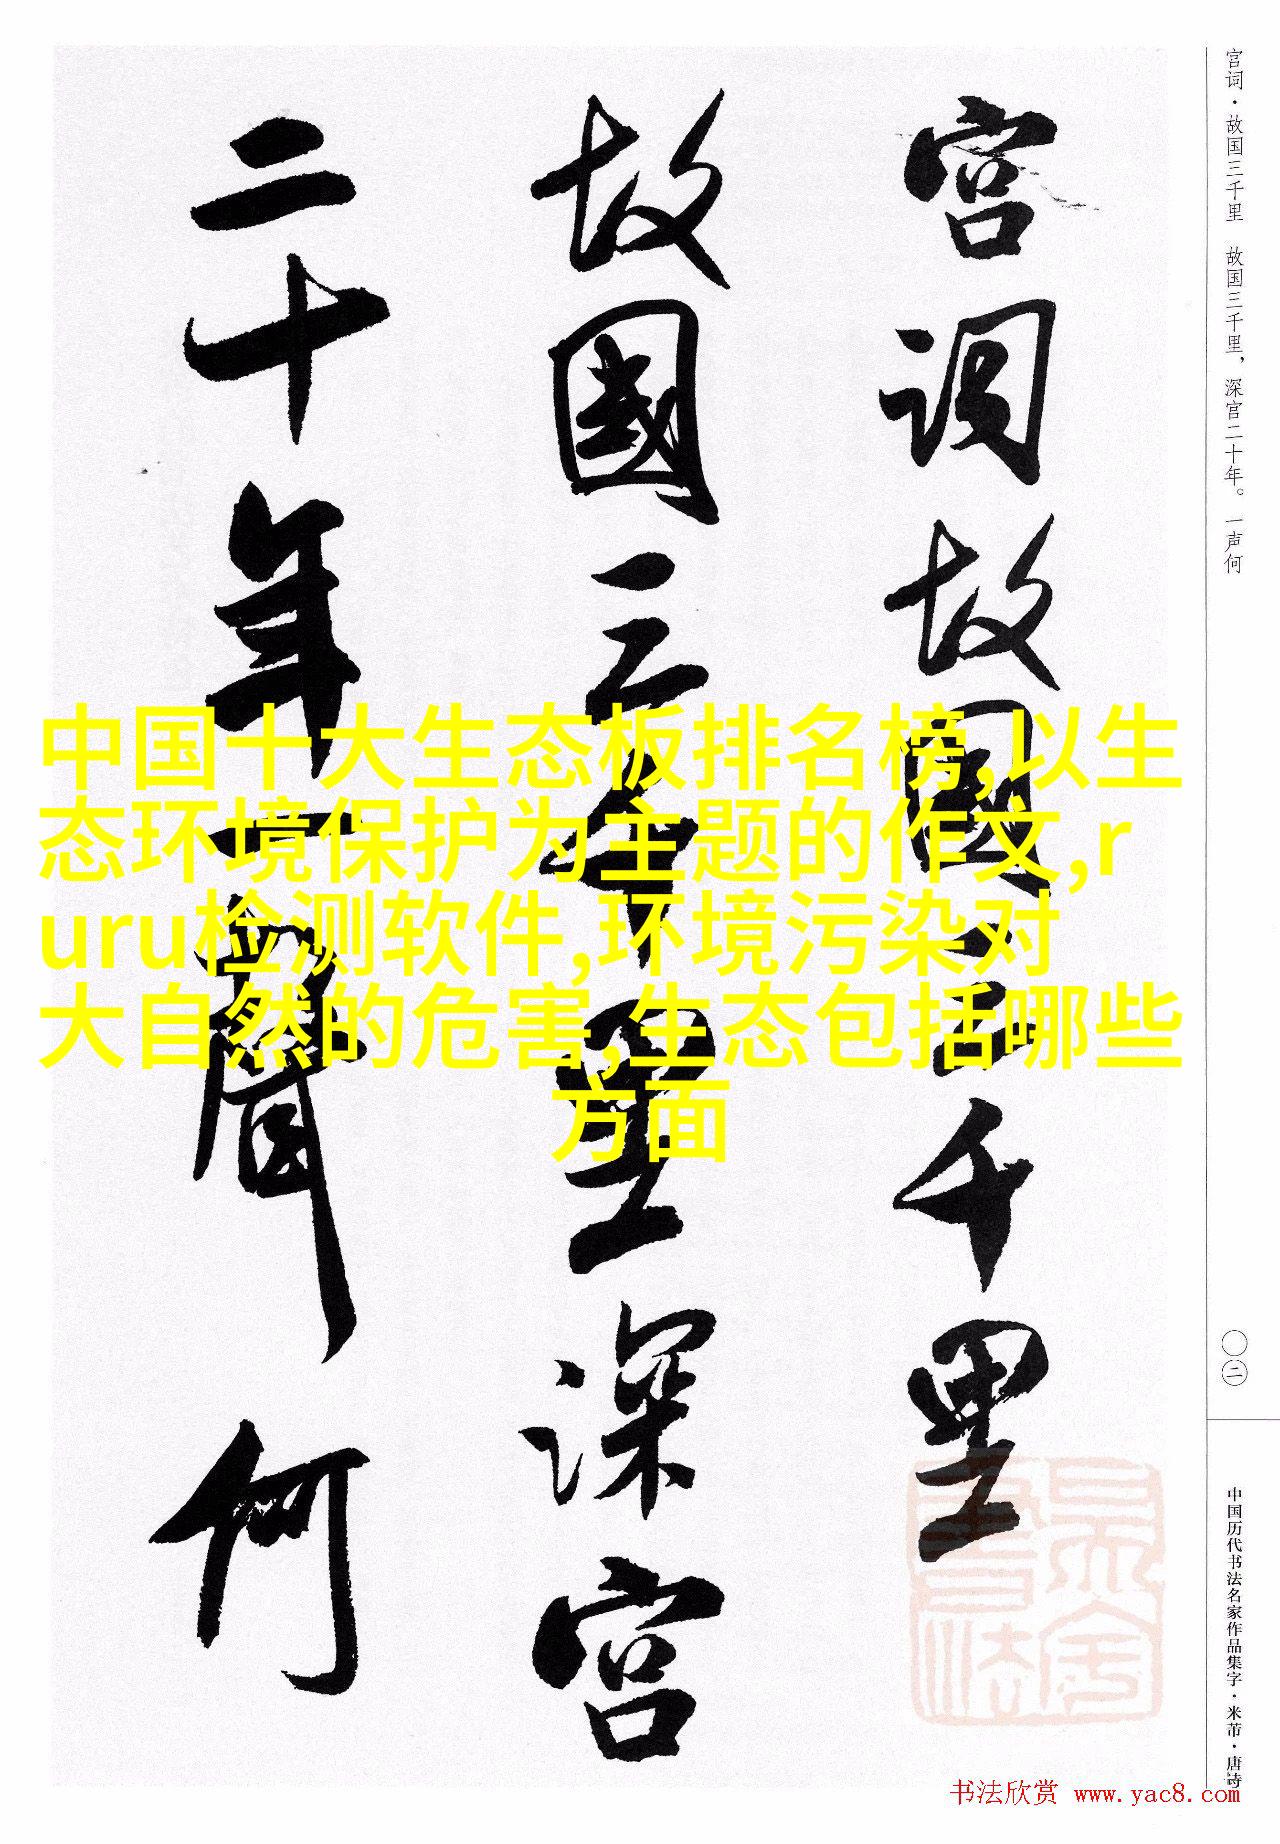 宫词·故国三千里 故国三千里，深宫二十年。一声何
宫词故國三千里
故國三千里深宫
二十年一聲何
中国十大生态板排名榜,以生
态环境保护为主题的作文,r
uru检测软件,环境污染对
大自然的危害,生态包括哪些
方面
〇二
中国历代书法名家作品集字·米芾·唐诗
书法欣赏 www.yac8.com